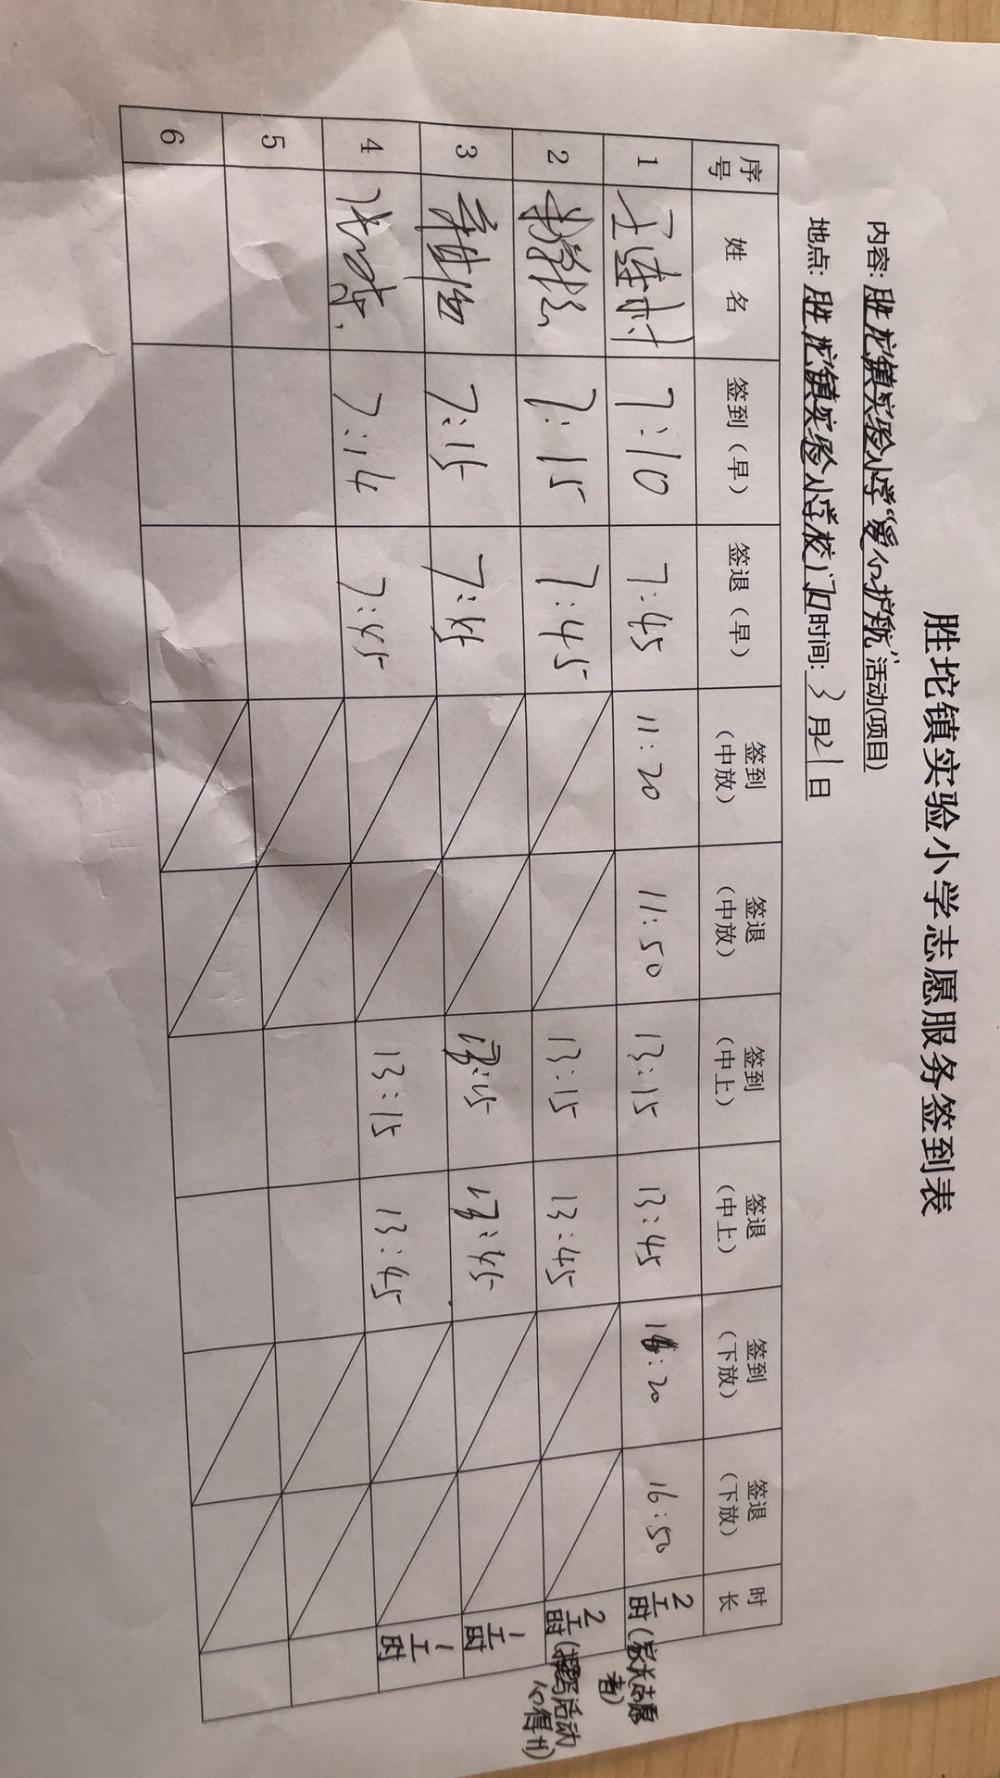 胜坨镇实验小学志愿服务签到表
内容: 胜坨镇实验小学“爱心护航”活动(项目)
地点: 胜坨镇实验小学校门口 时间: 3 月 21 日
序号 姓 名 签到(早) 签退(早) 签到(中放) 签退(中放) 签到(中上) 签退(中上) 签到(下放) 签退(下放) 时长
1 7:10 7:45 11:20 11:50 13:15 13:45 16:20 16:50 2工时(家长志愿者)
2 7:15 7:45 13:15 13:45 2工时(撰写活动心得+1)
3 7:15 7:45 13:15 13:45 1工时
4 7:14 7:45 13:15 13:45 1工时
5
6